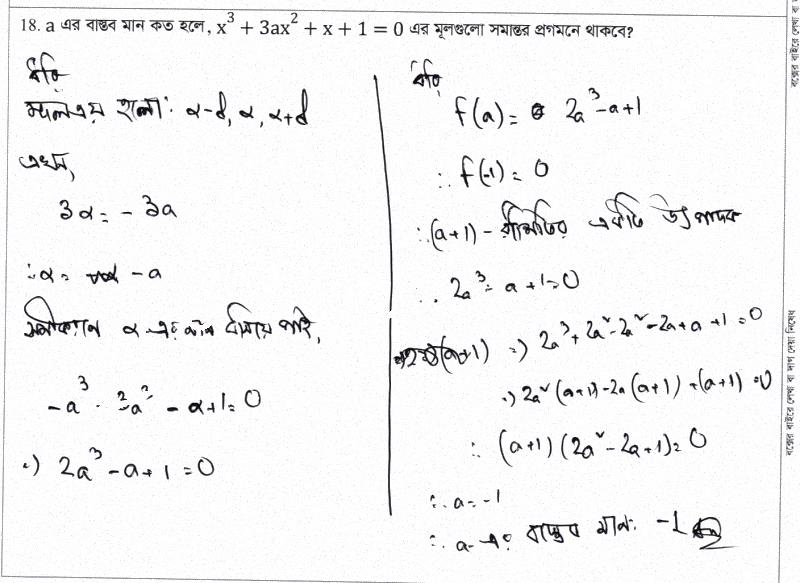 18. a এর বাস্তব মান কত হলে, x³ + 3ax² + x + 1 = 0 এর মূলগুলো সমান্তর প্রগমনে থাকবে?
ধরি
মূলত্রয় হলো: α-d, α, α+d
এখন,
3α = - 3a
∴ α = -a
সমীকরণে α এর মান বসিয়ে পাই,
-a³ + 3a³ - a + 1 = 0
⇒) 2a³ - a + 1 = 0
ধরি,
f(a) = 2a³ - a + 1
∴ f(-1) = 0
∴ (a+1) - রাশিটির একটি উৎপাদক
∴ 2a³ - a + 1 = 0
⇒) 2a³ + 2a² - 2a² - 2a + a + 1 = 0
⇒) 2a² (a+1) - 2a (a+1) + (a+1) = 0
∴ (a+1) (2a² - 2a + 1) = 0
∴ a = -1
∴ a-এর বাস্তব মান: -1
বক্সের বাইরে লেখা বা দাগ দেয়া নিষেধ